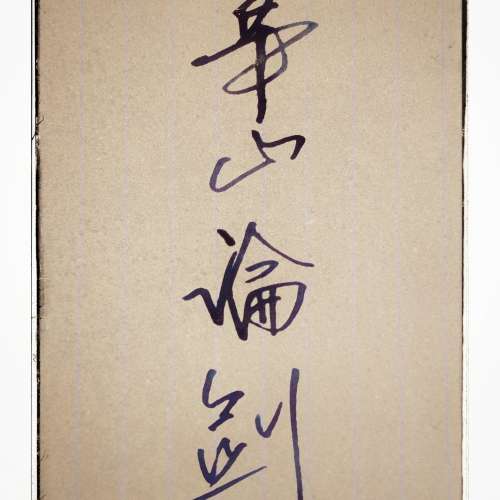 華山論劍